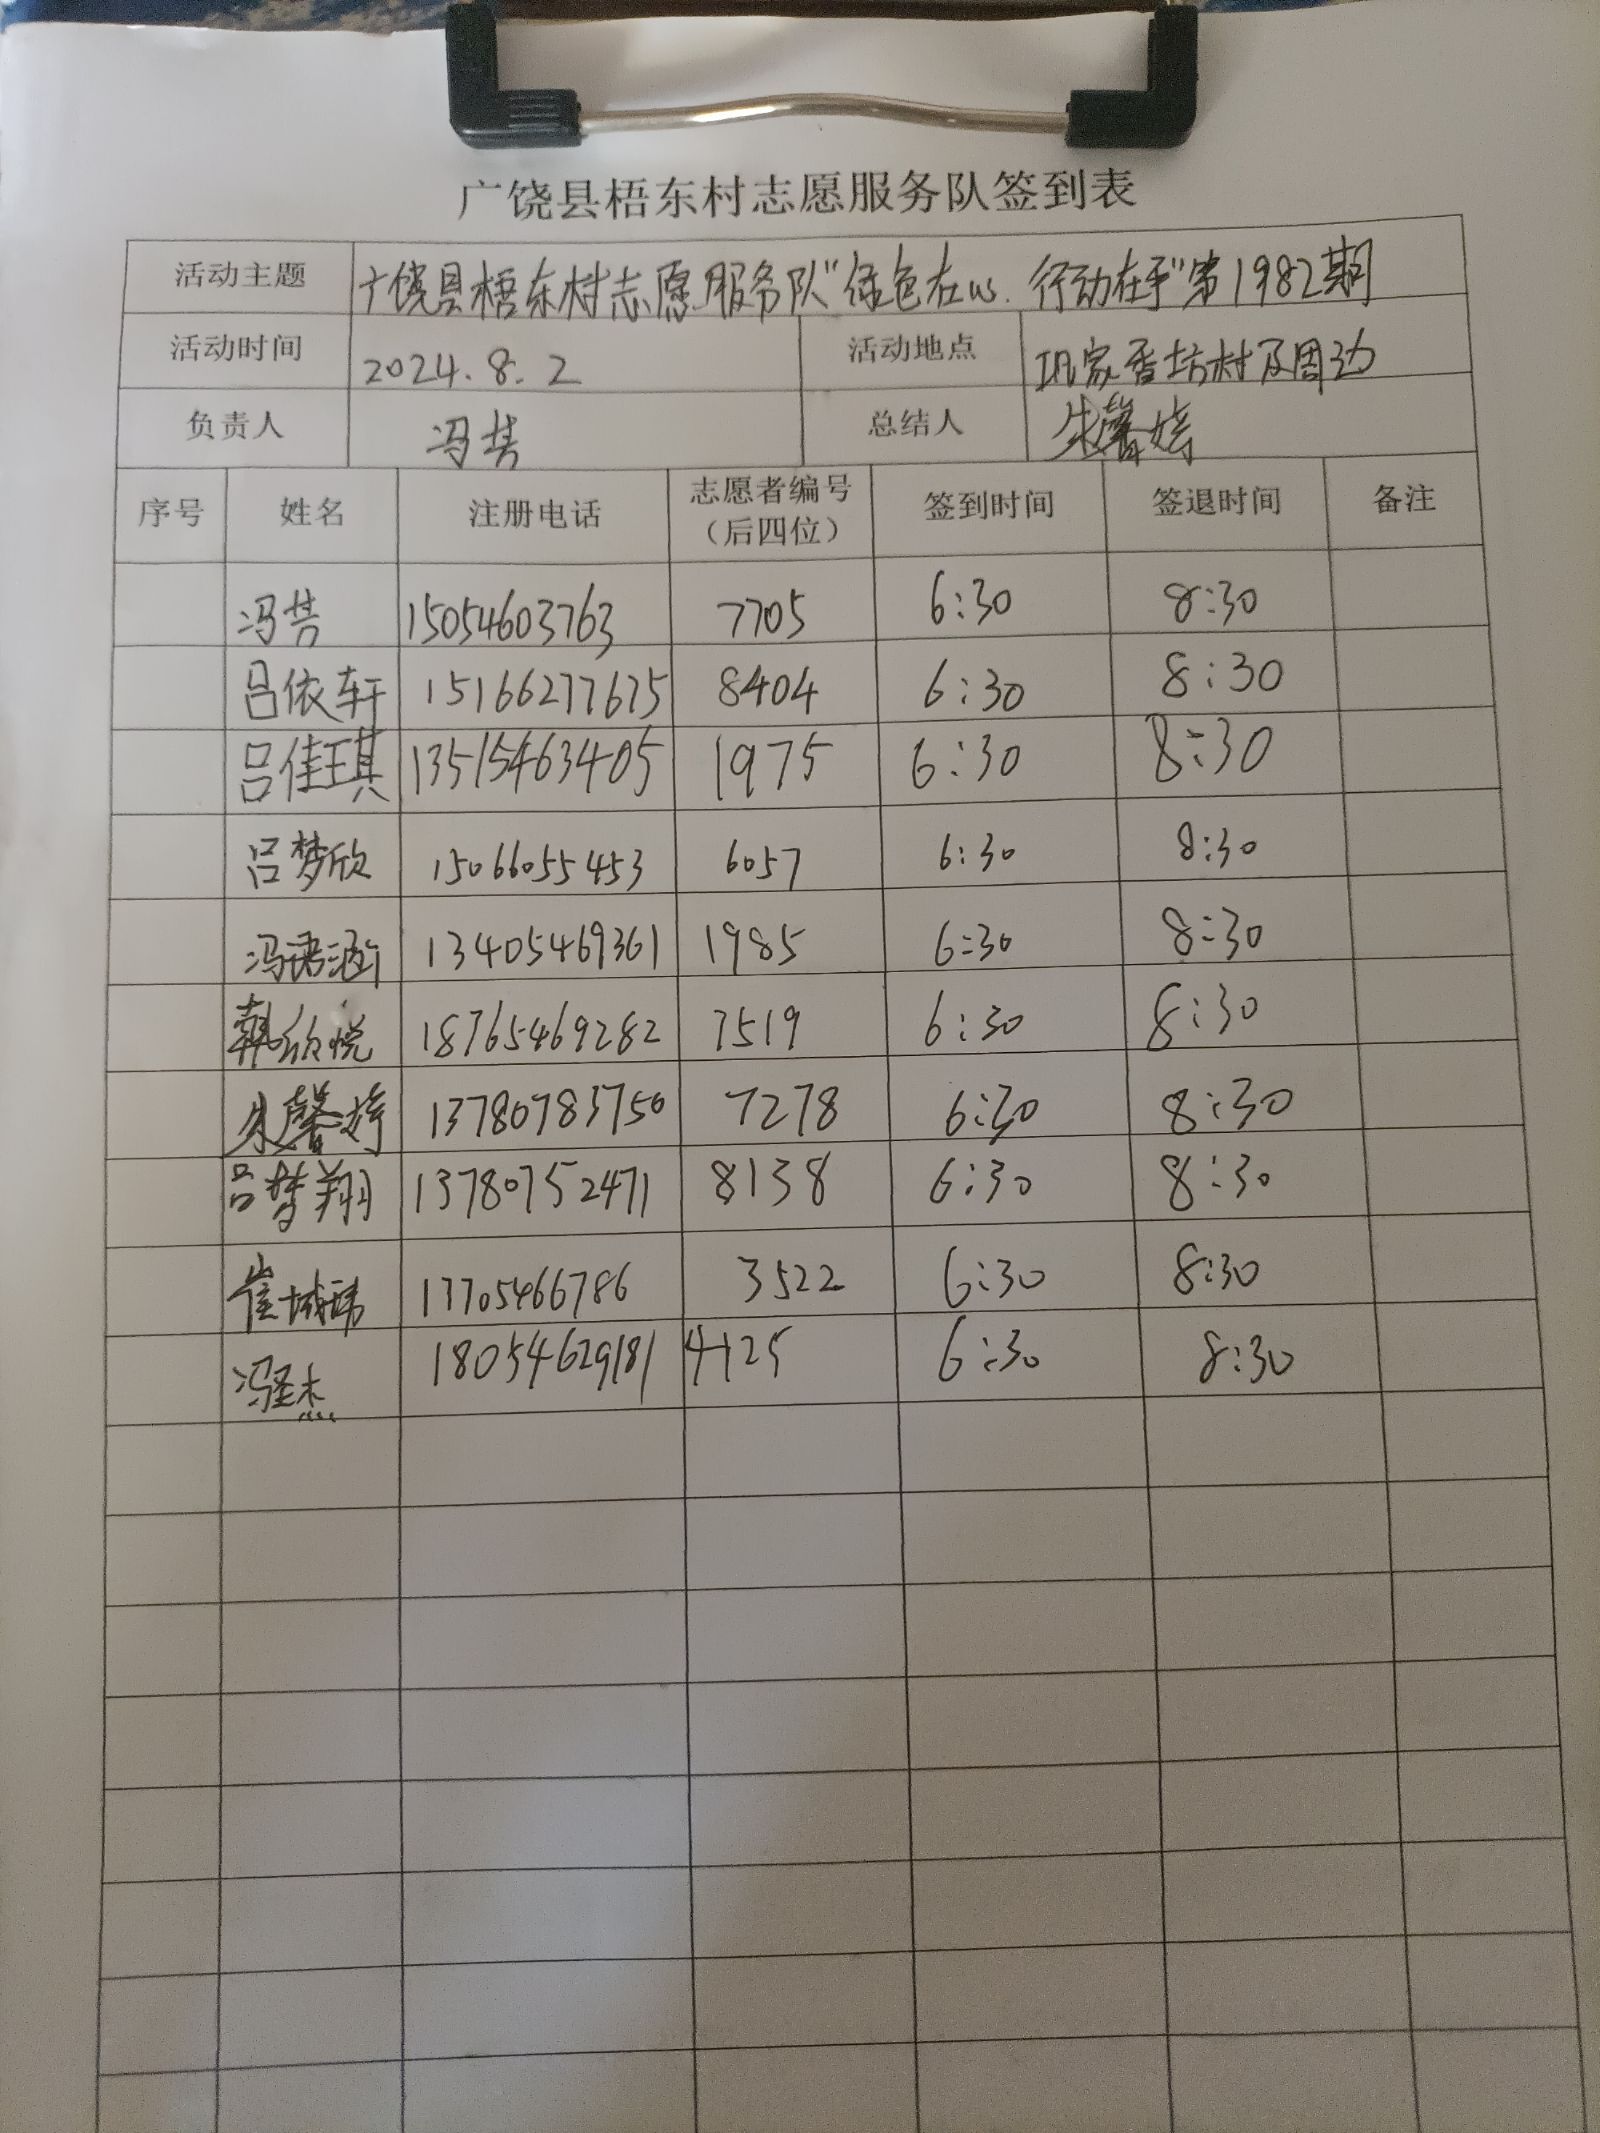 广饶县梧东村志愿服务队签到表
活动主题 广饶县梧东村志愿服务队“绿色在心、行动在手”第1982期
活动时间 2024.8.2 活动地点 巩家香坊村及周边
负责人 冯 总结人 朱馨婷
序号 姓名 注册电话 志愿者编号（后四位） 签到时间 签退时间 备注
冯 15054603763 7705 6:30 8:30
吕依轩 15166277675 8404 6:30 8:30
吕佳琪 13515463405 1975 6:30 8:30
吕梦欣 15066055453 6057 6:30 8:30
冯珺涵 13405469361 1985 6:30 8:30
韩欣悦 18765469282 7519 6:30 8:30
朱馨婷 13780783750 7278 6:30 8:30
吕梦翔 13780752471 8138 6:30 8:30
崔城玮 13705466786 3522 6:30 8:30
冯圣杰 18054629181 4125 6:30 8:30